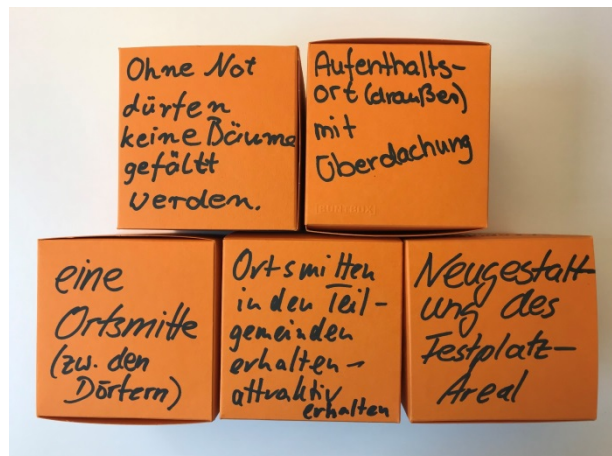 Ohne Not
dürfen
keine Bäume
gefällt
werden.
Aufenthalts-
ort (draußen)
mit
Überdachung
eine
Ortsmitte
(zw. den
Dörfern)
Ortsmitten
in den Teil-
gemeinden
erhalten -
attraktiv
erhalten
Neugestalt-
ung des
Festplatz-
Areal